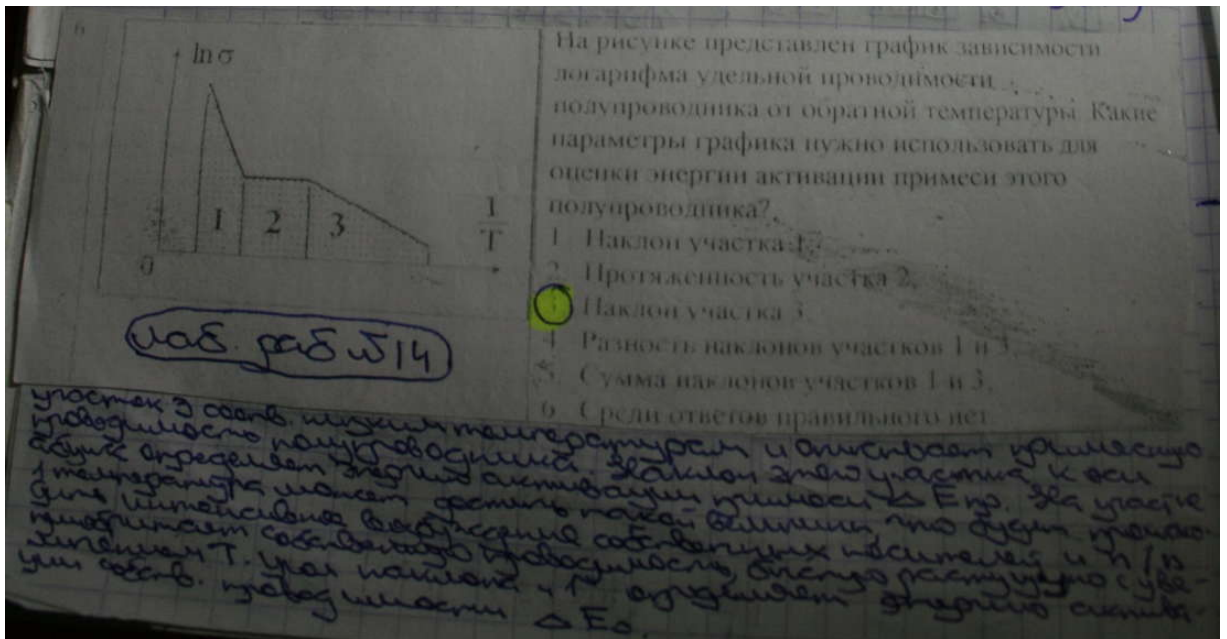 6
ln σ
1
2
3
1
T
0
На рисунке представлен график зависимости
логарифма удельной проводимости
полупроводника от обратной температуры. Какие
параметры графика нужно использовать для
оценки энергии активации примеси этого
полупроводника?
1 Наклон участка 1.
2. Протяженность участка 2.
3 Наклон участка 3.
4 Разность наклонов участков 1 и 3.
5. Сумма наклонов участков 1 и 3.
6 Среди ответов правильного нет.
лаб. раб №14
участок 3 соотв. низким температурам и описывает примесную
проводимость полупроводника. Наклон этого участка к оси
абсцисс определяет энергию активации примеси ΔEпр. На участке
1 температура может достичь такой величины что будет
интенсивное возбуждение собственных носителей и п/п
приобретает собственную проводимость быстро растущую с
T. угол наклона 1 определяет энергию
собств. проводимости ΔE₀